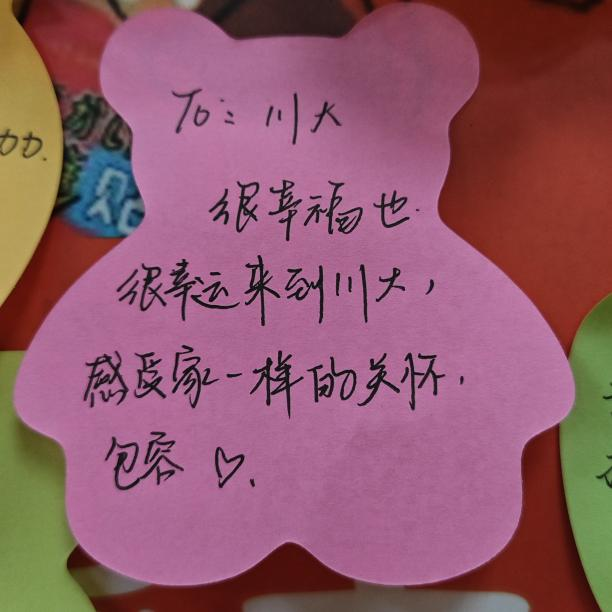 To: 川大
很幸福也
很幸运来到川大，
感受家一样的关怀，
包容♡.
加.
贴